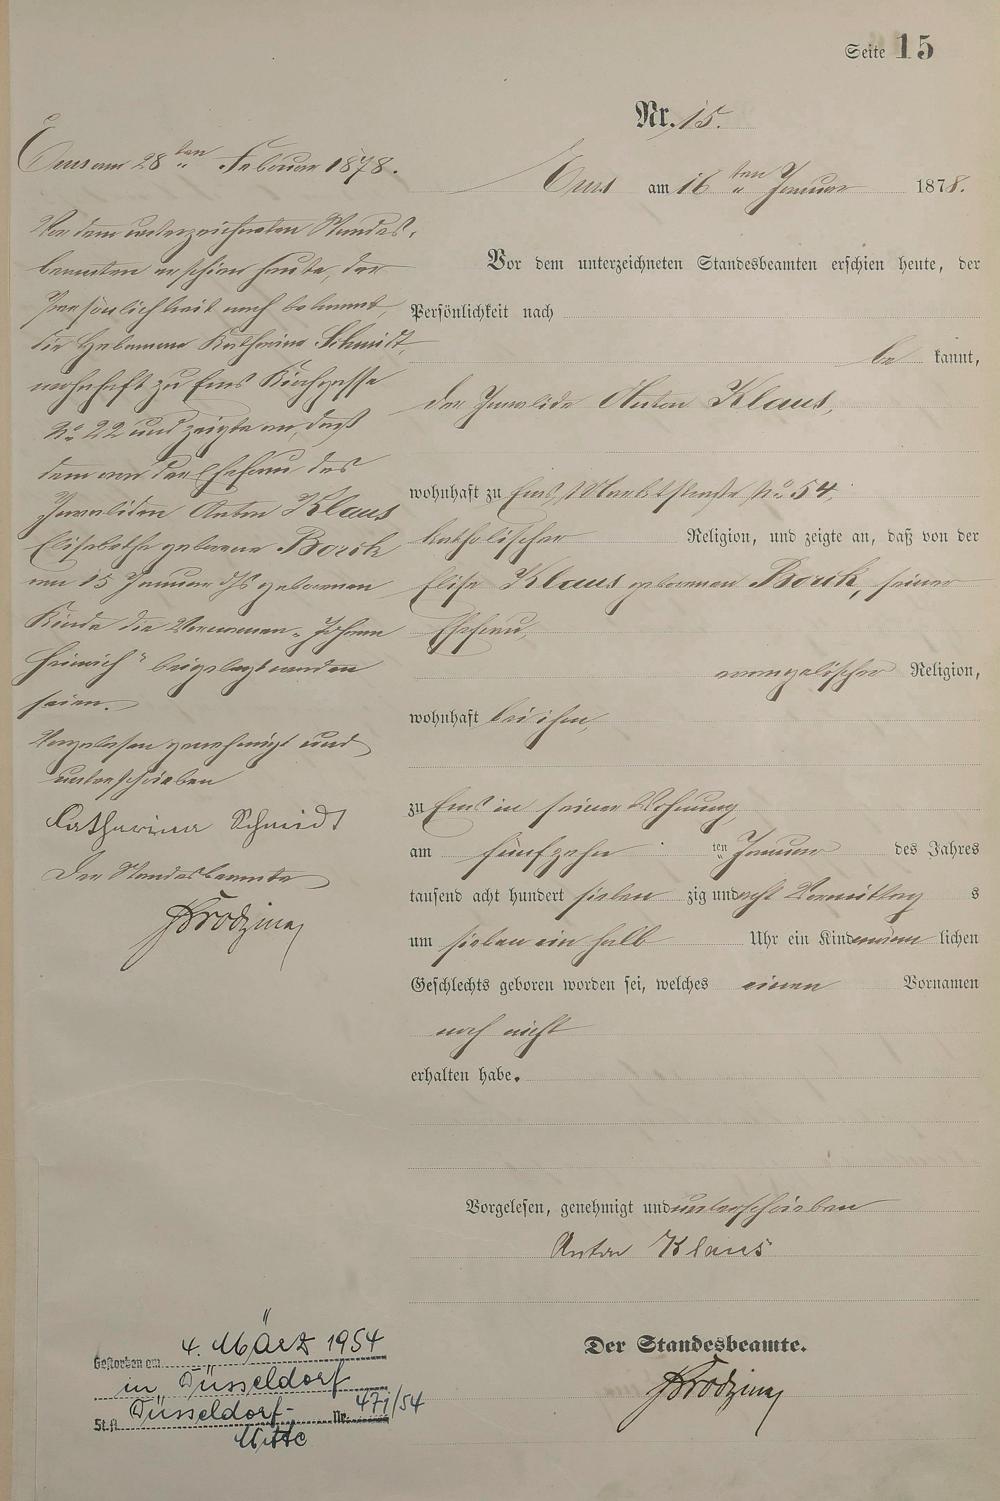 Seite 15
Nr. 15.
Ems am 16 ten Januar 1878.
Vor dem unterzeichneten Standesbeamten erschien heute, der
Persönlichkeit nach
be kannt,
der Invalide Anton Klaus,
wohnhaft zu Ems, Marktstraße No 54,
katholischer Religion, und zeigte an, daß von der
Elise Klaus geborenen Borik, seiner
Ehefrau,
evangelischer Religion,
wohnhaft bei ihm,
zu Ems in seiner Wohnung
am fünfzehn ten Januar des Jahres
tausend acht hundert sieben zig und acht Vormittag s
um sieben ein halb Uhr ein Kind männ lichen
Geschlechts geboren worden sei, welches einen Vornamen
noch nicht
erhalten habe.
Vorgelesen, genehmigt und unterschrieben
Anton Klaus
Der Standesbeamte.
Ems am 28 ten Februar 1878.
Vor dem unterzeichneten Standes-
beamten erschien heute, der
Persönlichkeit nach bekannt,
die Hebamme Katharina Schmidt,
wohnhaft zu Ems Kirchgasse
No 22 und zeigte an, daß
dem von der Ehefrau des
Invaliden Anton Klaus
Elisabethe geborene Borik
am 15 Januar geborenen
Kinde die Vornamen „Johann
Heinrich" beigelegt worden
seien.
Vorgelesen genehmigt und
unterschrieben
Catharina Schmidt
Der Standesbeamte
Gestorben am 4. März 1954
in Düsseldorf
St.A. Düsseldorf- Nr. 471/54
Mitte